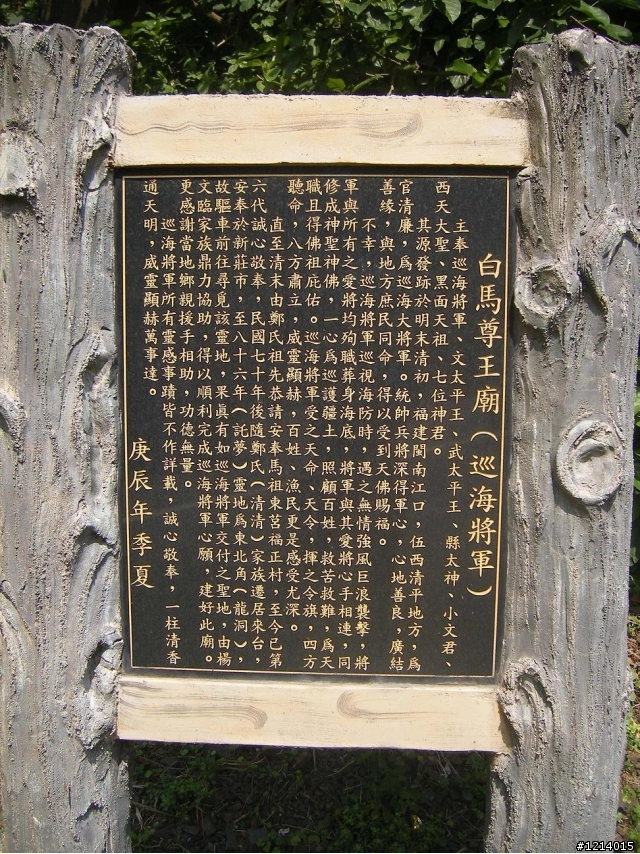 白馬尊王廟（巡海將軍）
主奉巡海將軍、文太平王、武太平王、縣太神、小文君、
西天大聖、黑面天祖、七位神君。
其源發跡於明末清初，福建閩南江口，伍西清平地方，為
官清廉，為巡海大將軍。統帥兵將深得軍心，心地善良，廣結
善緣，與地方庶民同命，得以受到天佛賜福。
不幸，巡海將軍巡視海防時，遇之無情強風巨浪襲擊，將
軍與所有之愛將均殉職葬身海底，將軍與其愛將心手相連，同
修成神聖神佛，一心為巡護疆土，照顧百姓，救苦救難，為天
職且得佛祖庇佑。巡海將軍受之天命、天令，揮之令旗，四方
聽命，八方肅立，威靈顯赫，百姓、漁民更是感受尤深。
直至清末由鄭氏祖先恭請安奉馬祖東莒福正村，至今已第
六代誠心敬奉，民國七十年後隨鄭氏（清清）家族遷居來台，
安奉於新莊市，至八十六年（託夢）靈地為東北角（龍洞），
故驅車前往尋覓該靈地，果真有如巡海將軍交付之聖地，由楊
文臨家族鼎力協助，得以順利完成巡海將軍心願，建好此廟。
更感謝當地鄉親援手相助，功德無量。
巡海將軍所有靈感事蹟皆不作詳載，誠心敬奉，一柱清香
通天明，威靈顯赫萬事達。
庚辰年季夏
#1214015